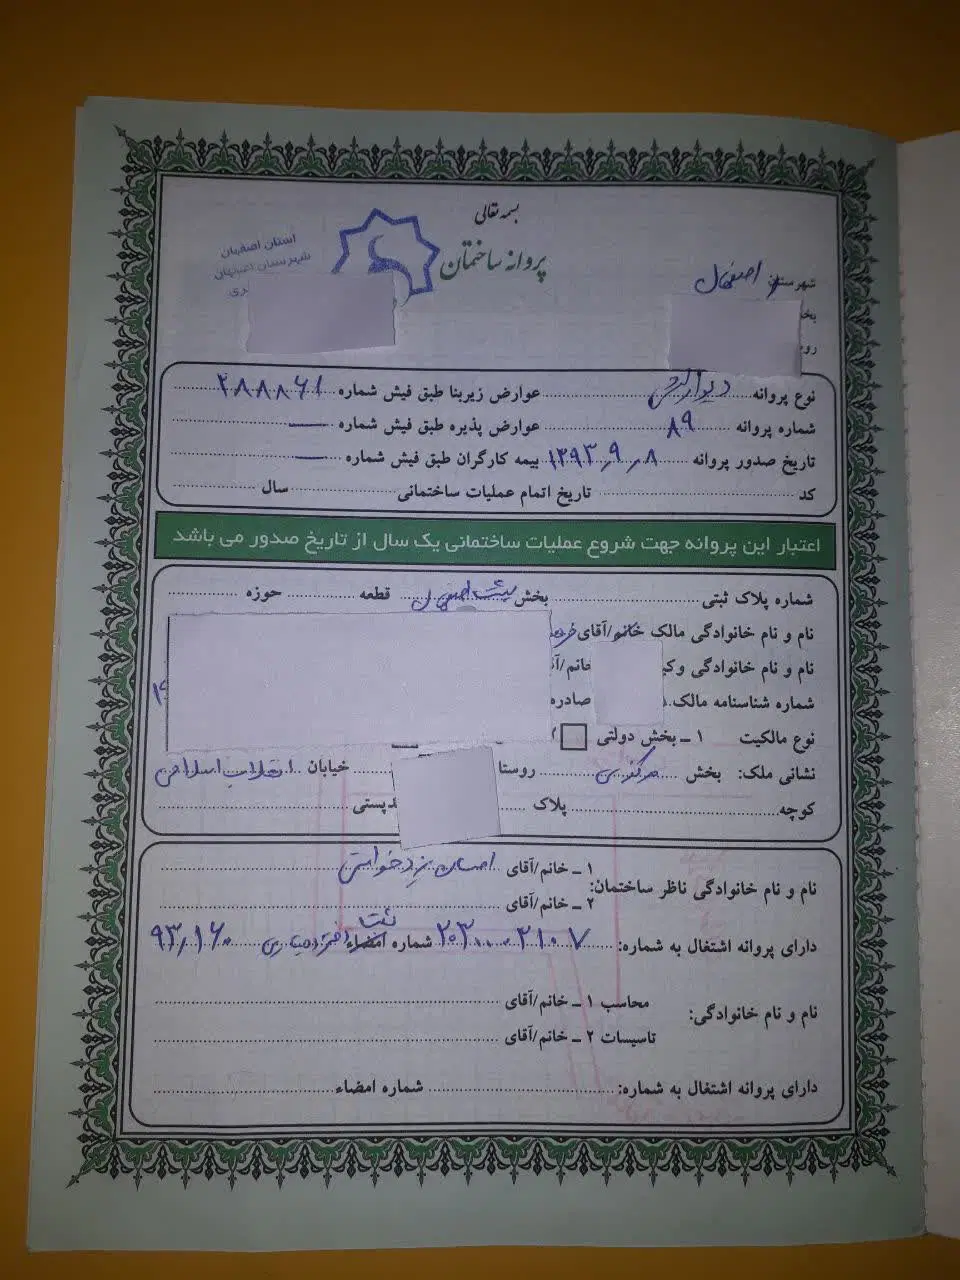 بسمه تعالی
پروانه ساختمان
استان اصفهان
شهرستان اصفهان
شهرستان اصفهان
نوع پروانه دیوارکشی عوارض زیربنا طبق فیش شماره ۲۸۸۸۶۱
شماره پروانه ۸۹ عوارض پذیره طبق فیش شماره —
تاریخ صدور پروانه ۱۳۹۳٫۹٫۸ بیمه کارگران طبق فیش شماره —
کد تاریخ اتمام عملیات ساختمانی سال
اعتبار این پروانه جهت شروع عملیات ساختمانی یک سال از تاریخ صدور می باشد
شماره پلاک ثبتی بخش اصفهان قطعه حوزه
نام و نام خانوادگی مالک خانم/آقای
نام و نام خانوادگی
شماره شناسنامه مالک صادره
نوع مالکیت ۱ ـ بخش دولتی
نشانی ملک: بخش مرکزی خیابان انقلاب اسلامی
کوچه پلاک
نام و نام خانوادگی ناظر ساختمان: ۱ ـ خانم/آقای احسان یزدخواستی
۲ ـ خانم/آقای
دارای پروانه اشتغال به شماره: شماره امضاء
نام و نام خانوادگی: محاسب ۱ ـ خانم/آقای
تاسیسات ۲ ـ خانم/آقای
دارای پروانه اشتغال به شماره: شماره امضاء